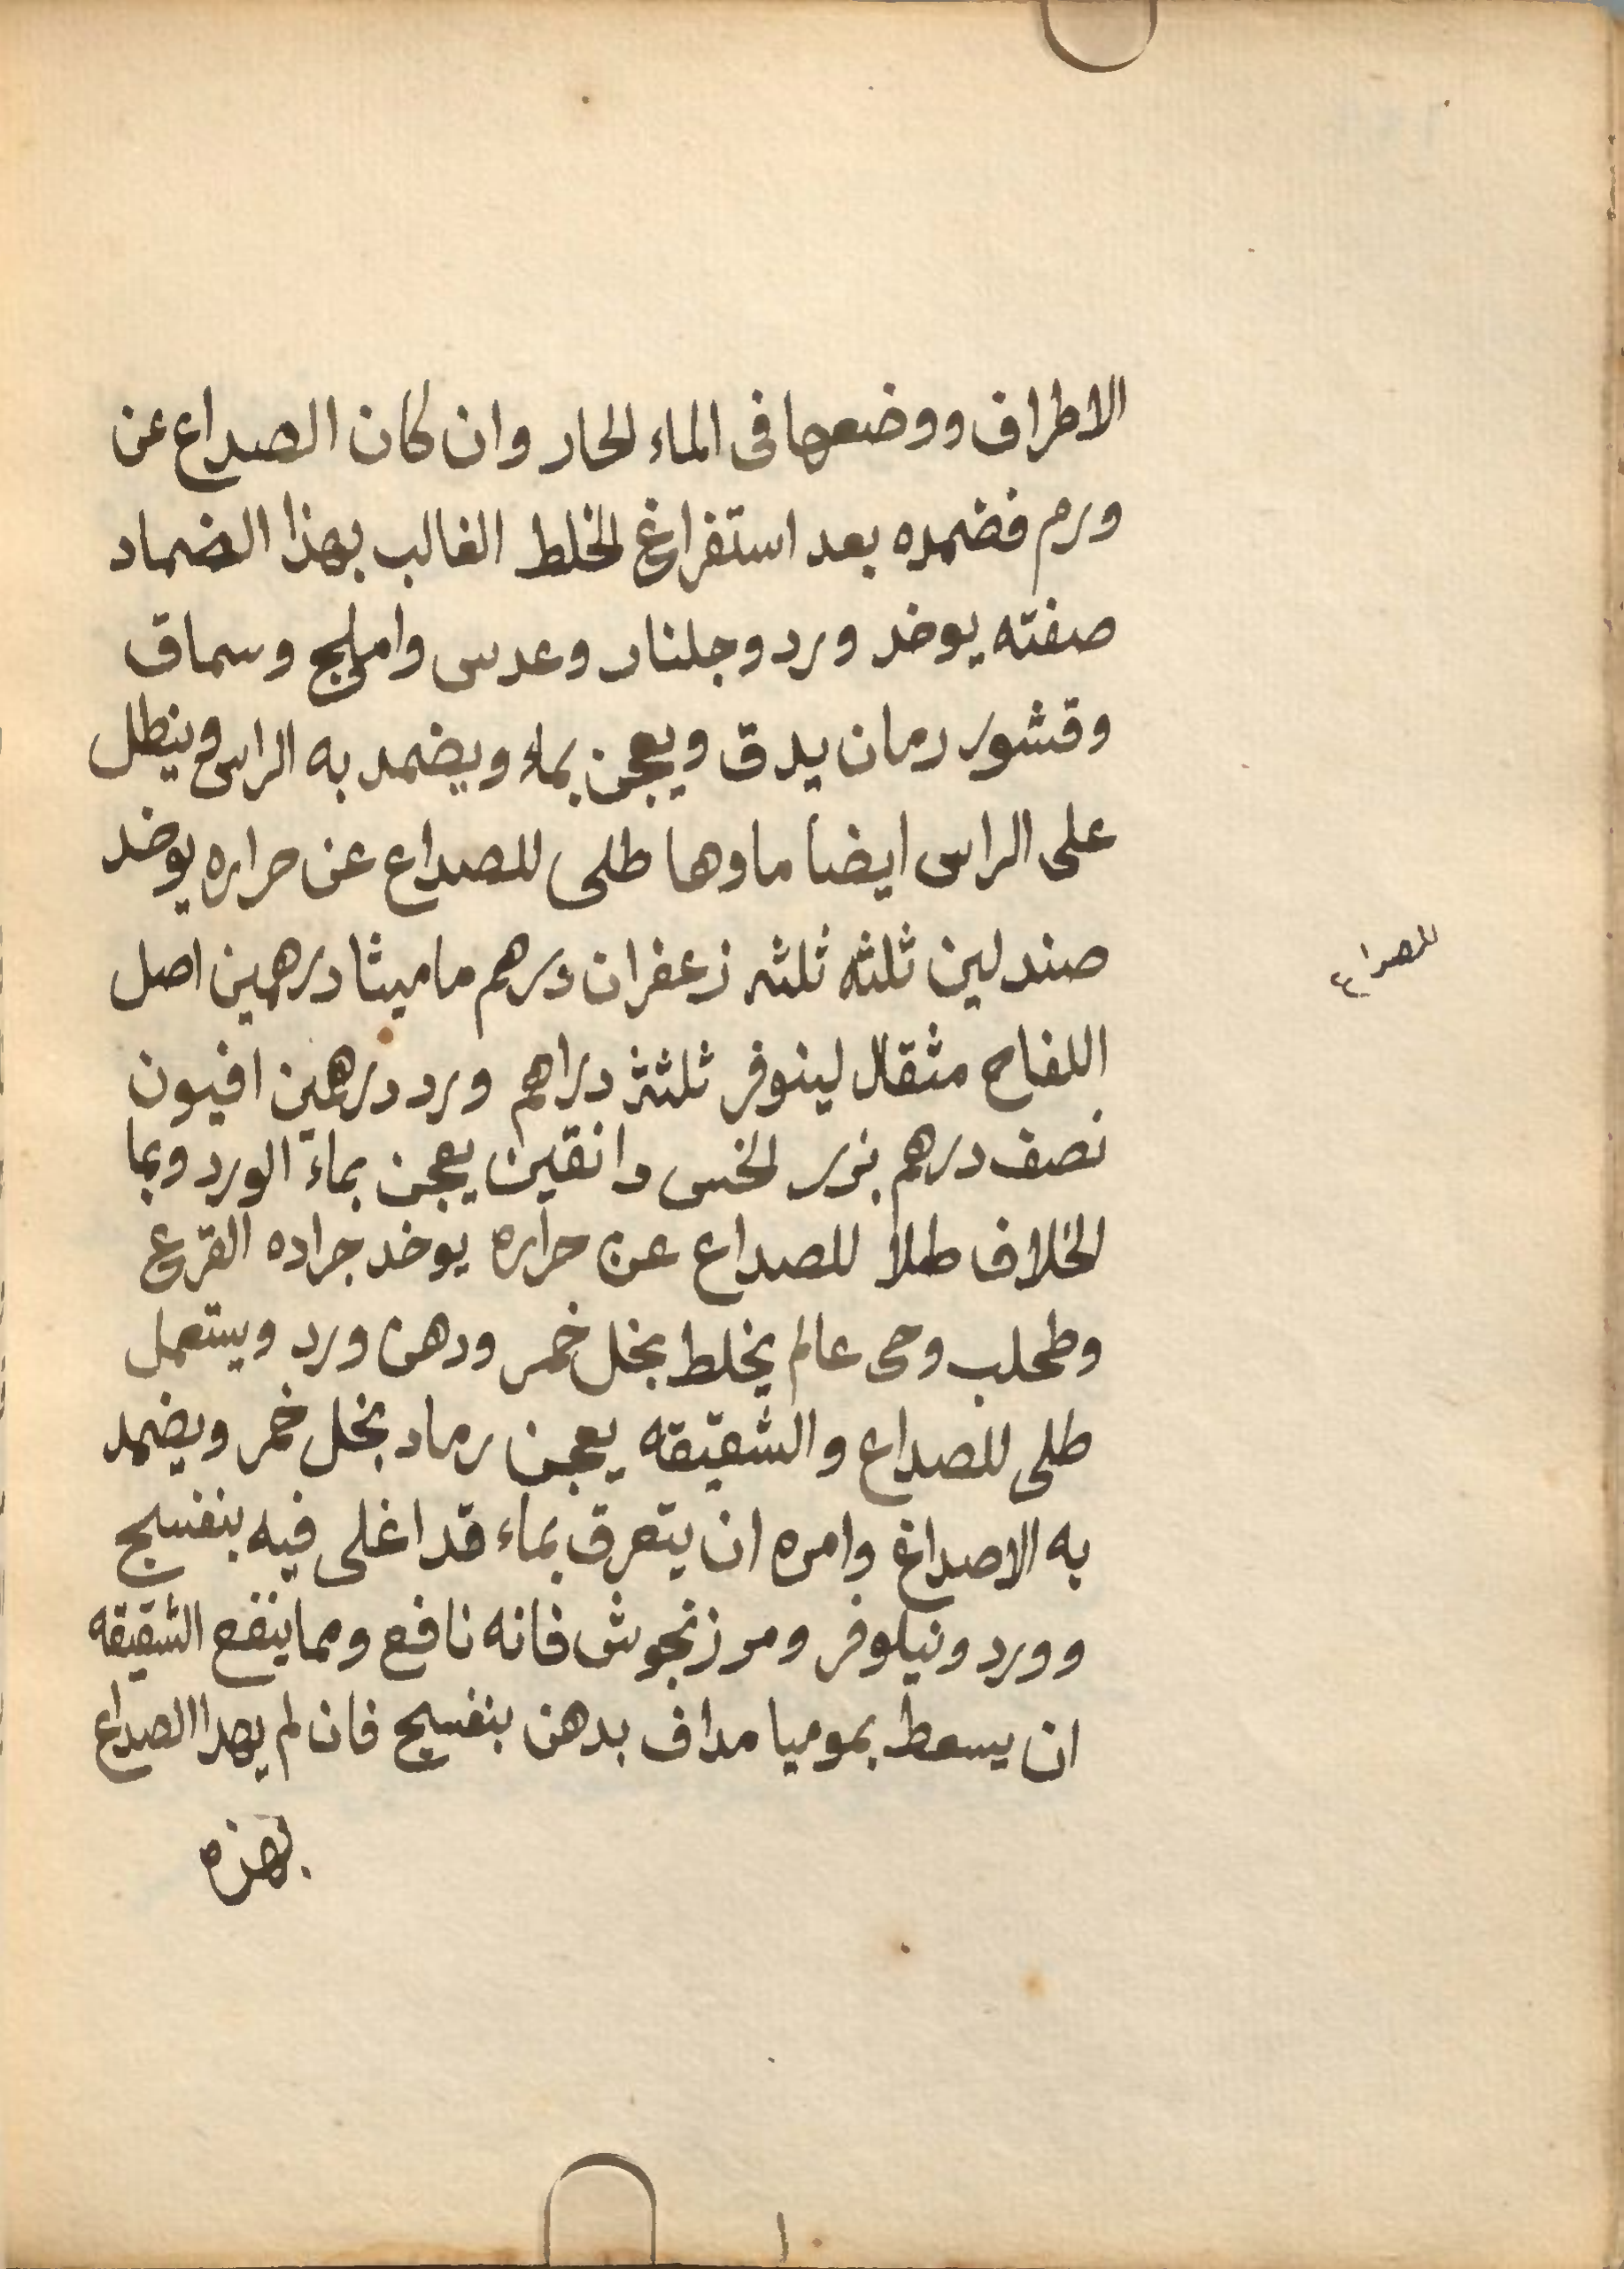 الاطراف ووضعها فى الماء الحار وان كان الصداع عن
ورم فضمده بعد استفراغ الخلط الغالب بهذا الضماد
صفته يوخد ورد وجلنار وعدس واملج وسماق
وقشور رمان يدق ويعجن بماء ويضمد به الراس وينطل
على الراس ايضا ماوها طلى للصداع عن حراره يوخد
صندلين ثلثه ثلثه زعفران درهم ماميثا درهمين اصل
للصداع
اللفاح مثقال لينوفر ثلثة دراهم ورد درهمين افيون
نصف درهم بزر الخس دانقين يعجن بماء الورد وبما
الخلاف طلا للصداع عن حراره يوخد جراده القرع
وطحلب وحى عالم يخلط بخل خمر ودهن ورد ويستعمل
طلى للصداع والشقيقه يعجن رماد بخل خمر ويضمد
به الاصداغ وامره ان يتعرق بماء قد اغلى فيه بنفسج
وورد ونيلوفر ومرزنجوش فانه نافع ومما ينفع الشقيقه
ان يسعط بموميا مداف بدهن بنفسج فان لم يهدا الصداع
بهذه
١٠